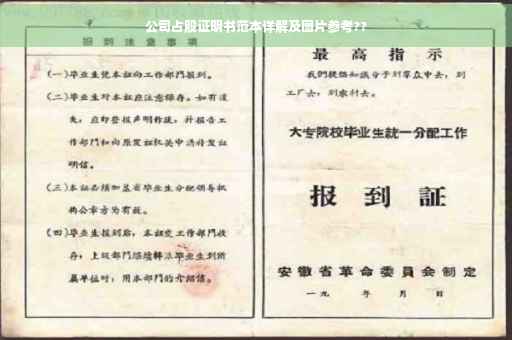 公司占股证明书范本详解及图片参考??
报到注意事项
(一)毕业生凭本证向工作部门报到。
(二)毕业生对本证应注意保存。如有遗
失,应即登报声明作废,并报告工
作部门和向原发证机关申请补发证
明信。
(三)本证必须加盖省毕业生分配领导机
构公章方为有效。
(四)毕业生报到后,本证交工作部门收
存,上级部门继续转派毕业生到所
属单位时,用本部门的介绍信。
最高指示
我们提倡知识分子到群众中去,到
工厂去,到农村去。
大专院校毕业生统一分配工作
报到证
安徽省革命委员会制定
一九 年 月 日